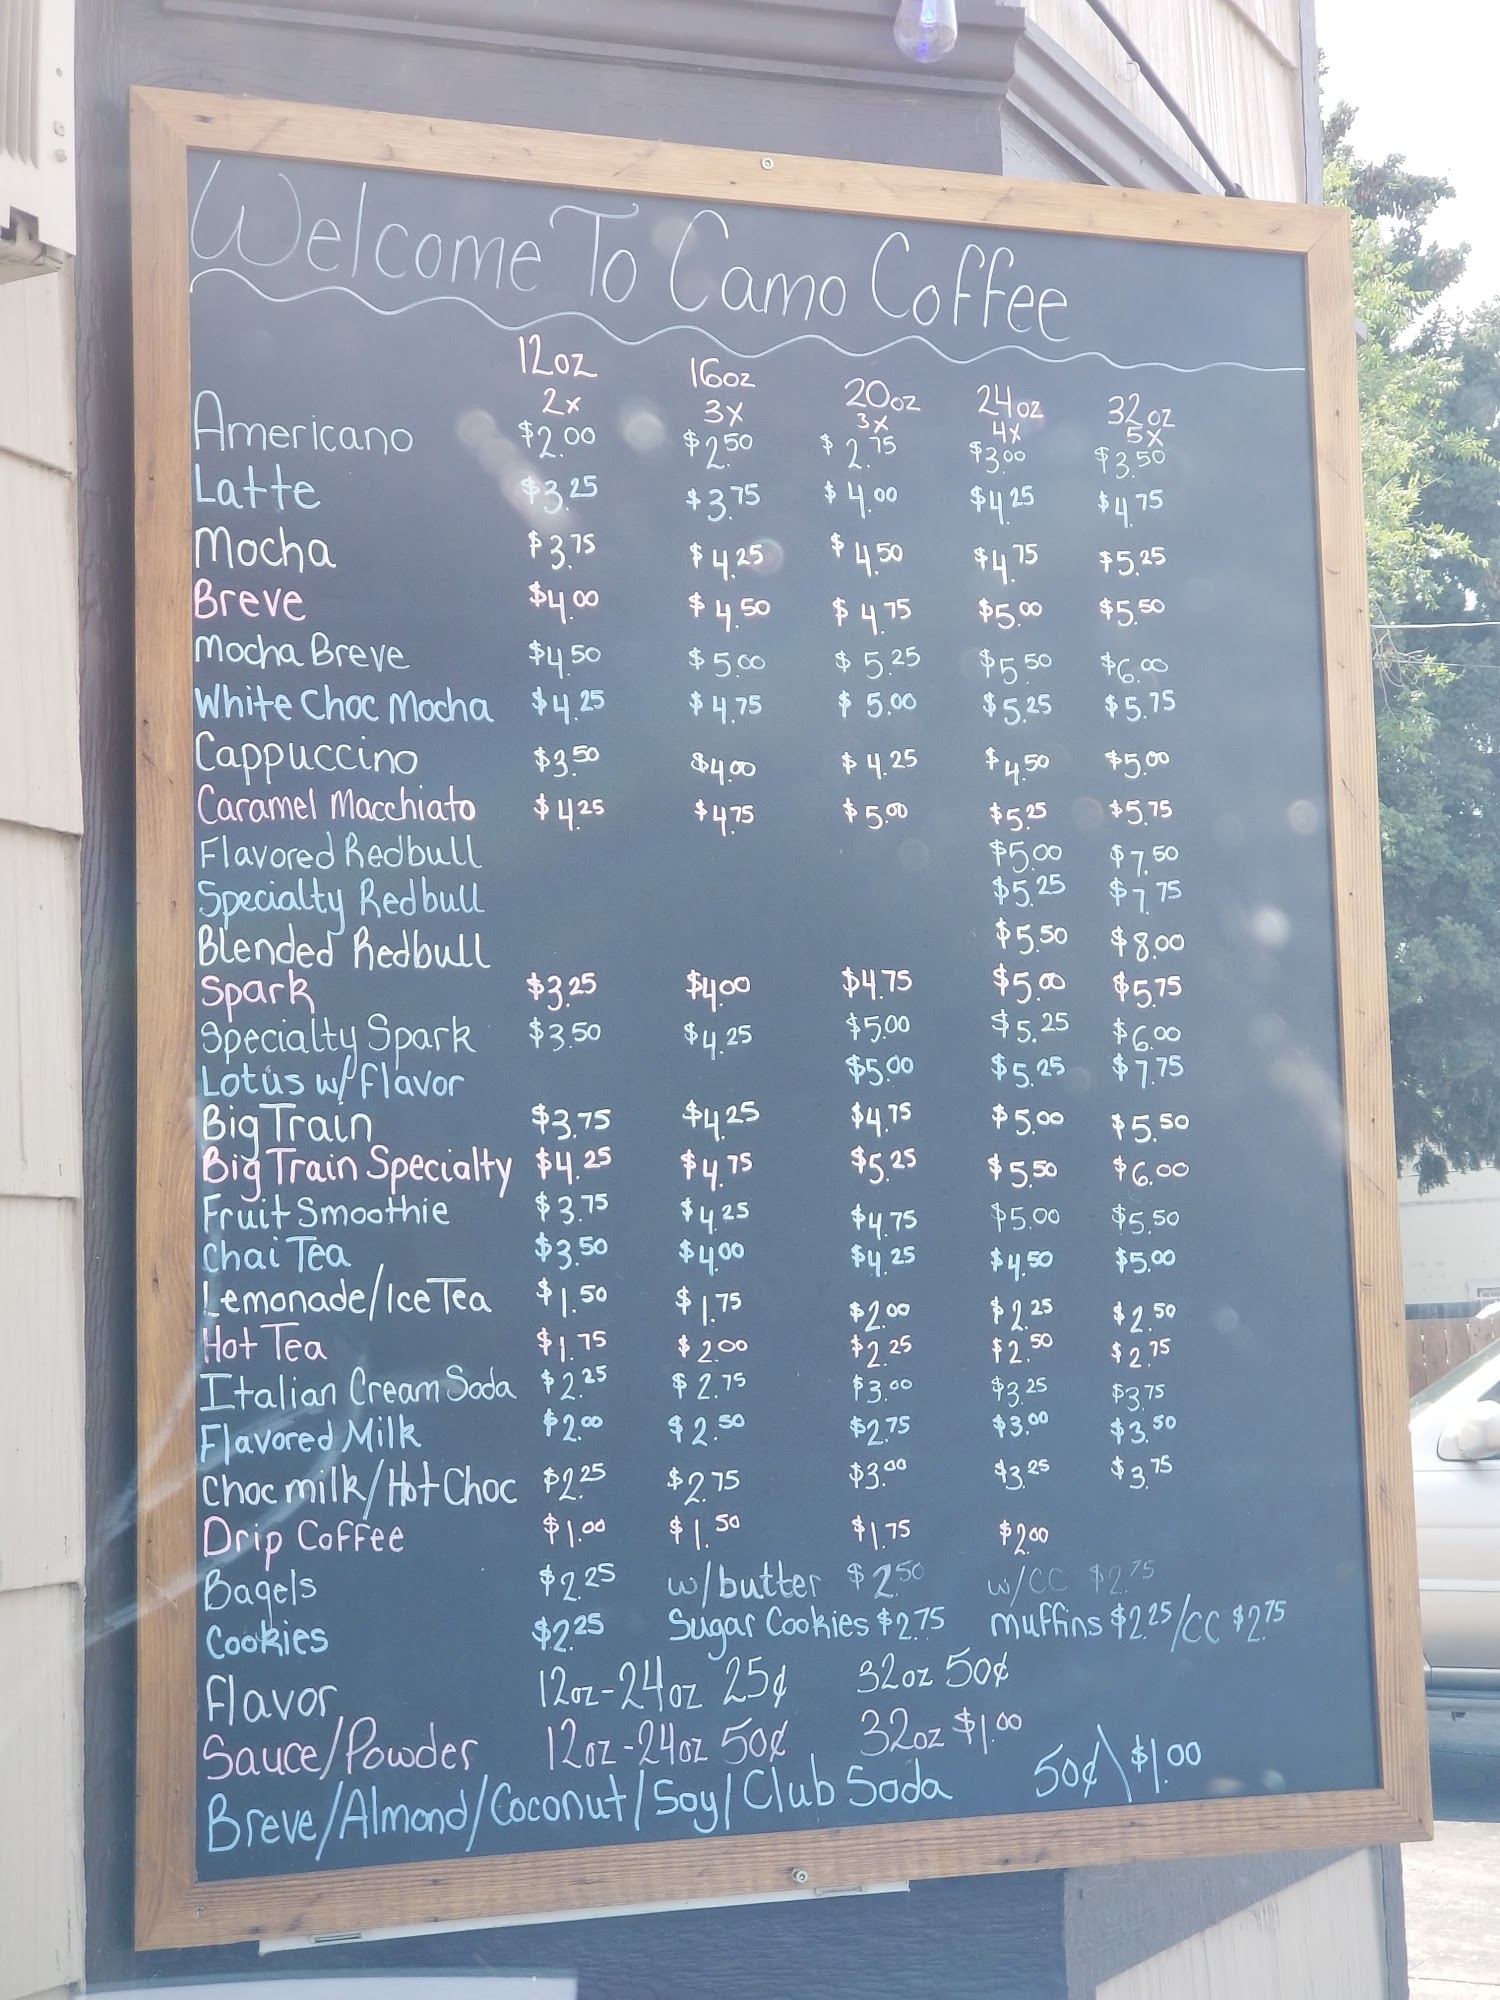 Welcome To Camo Coffee
12oz 16oz 20oz 24oz 32oz
2x 3x 3x 4x 5x
Americano $2.00 $2.50 $2.75 $3.00 $3.50
Latte $3.25 $3.75 $4.00 $4.25 $4.75
Mocha $3.75 $4.25 $4.50 $4.75 $5.25
Breve $4.00 $4.50 $4.75 $5.00 $5.50
Mocha Breve $4.50 $5.00 $5.25 $5.50 $6.00
White Choc Mocha $4.25 $4.75 $5.00 $5.25 $5.75
Cappuccino $3.50 $4.00 $4.25 $4.50 $5.00
Caramel Macchiato $4.25 $4.75 $5.00 $5.25 $5.75
Flavored Redbull $5.00 $7.50
Specialty Redbull $5.25 $7.75
Blended Redbull $5.50 $8.00
Spark $3.25 $4.00 $4.75 $5.00 $5.75
Specialty Spark $3.50 $4.25 $5.00 $5.25 $6.00
Lotus w/ Flavor $5.00 $5.25 $7.75
Big Train $3.75 $4.25 $4.75 $5.00 $5.50
Big Train Specialty $4.25 $4.75 $5.25 $5.50 $6.00
Fruit Smoothie $3.75 $4.25 $4.75 $5.00 $5.50
Chai Tea $3.50 $4.00 $4.25 $4.50 $5.00
Lemonade/Ice Tea $1.50 $1.75 $2.00 $2.25 $2.50
Hot Tea $1.75 $2.00 $2.25 $2.50 $2.75
Italian Cream Soda $2.25 $2.75 $3.00 $3.25 $3.75
Flavored Milk $2.00 $2.50 $2.75 $3.00 $3.50
Choc milk/Hot Choc $2.25 $2.75 $3.00 $3.25 $3.75
Drip Coffee $1.00 $1.50 $1.75 $2.00
Bagels $2.25 w/butter $2.50 w/CC $2.75
Cookies $2.25 Sugar Cookies $2.75 muffins $2.25/CC $2.75
Flavor 12oz-24oz 25¢ 32oz 50¢
Sauce/Powder 12oz-24oz 50¢ 32oz $1.00
Breve/Almond/Coconut/Soy/Club Soda 50¢\$1.00